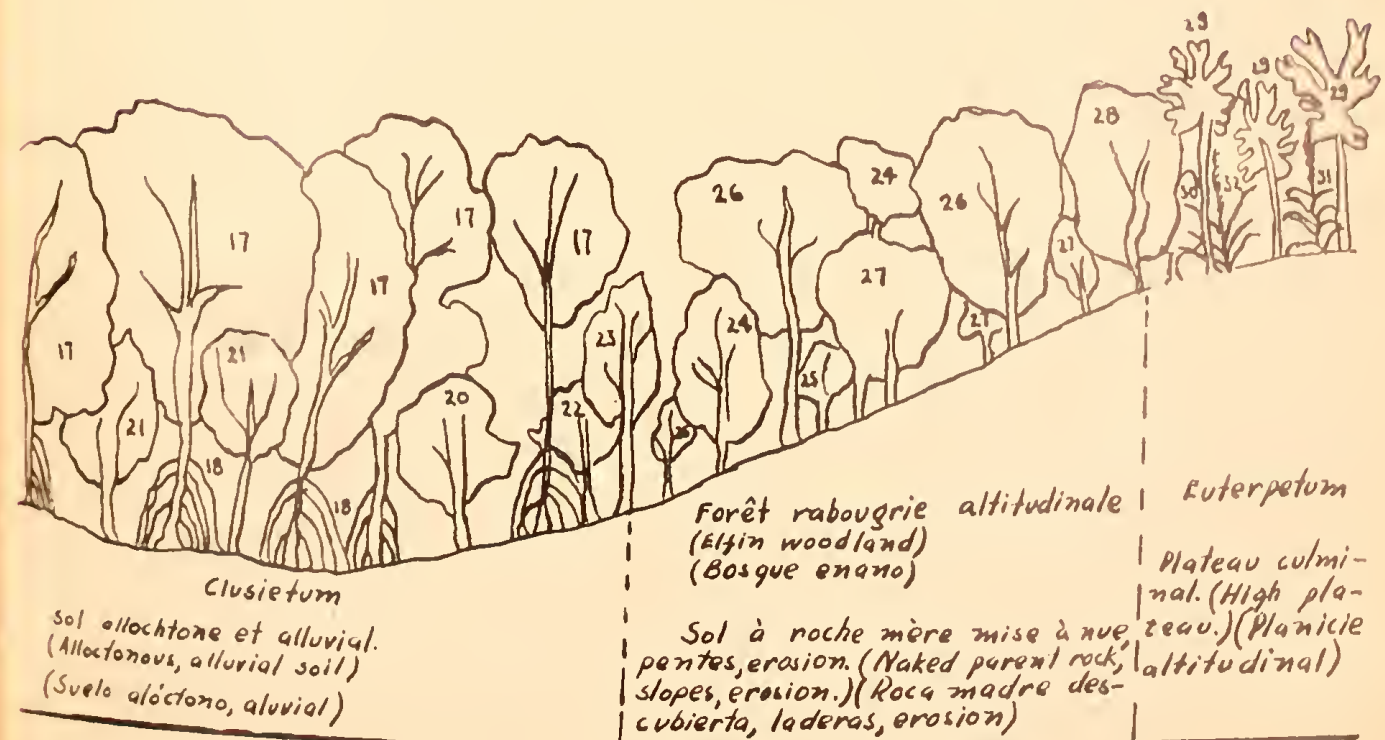 29
29
29
28
24
26
26
17
17
17
17
17
30
32
31
27
27
27
24
25
23
21
21
20
22
18
18
Clusietum
Sol allochtone et alluvial.
(Alloctonous, alluvial soil)
(Suelo alóctono, aluvial)
Forêt rabougrie altitudinale
(Elfin woodland)
(Bosque enano)
Sol à roche mère mise à nue,
pentes, erosion. (Naked parent rock,
slopes, erosion.) (Roca madre des-
cubierta, laderas, erosion)
Euterpetum
Plateau culmi-
nal. (High pla-
teau.) (Planicie
altitudinal)